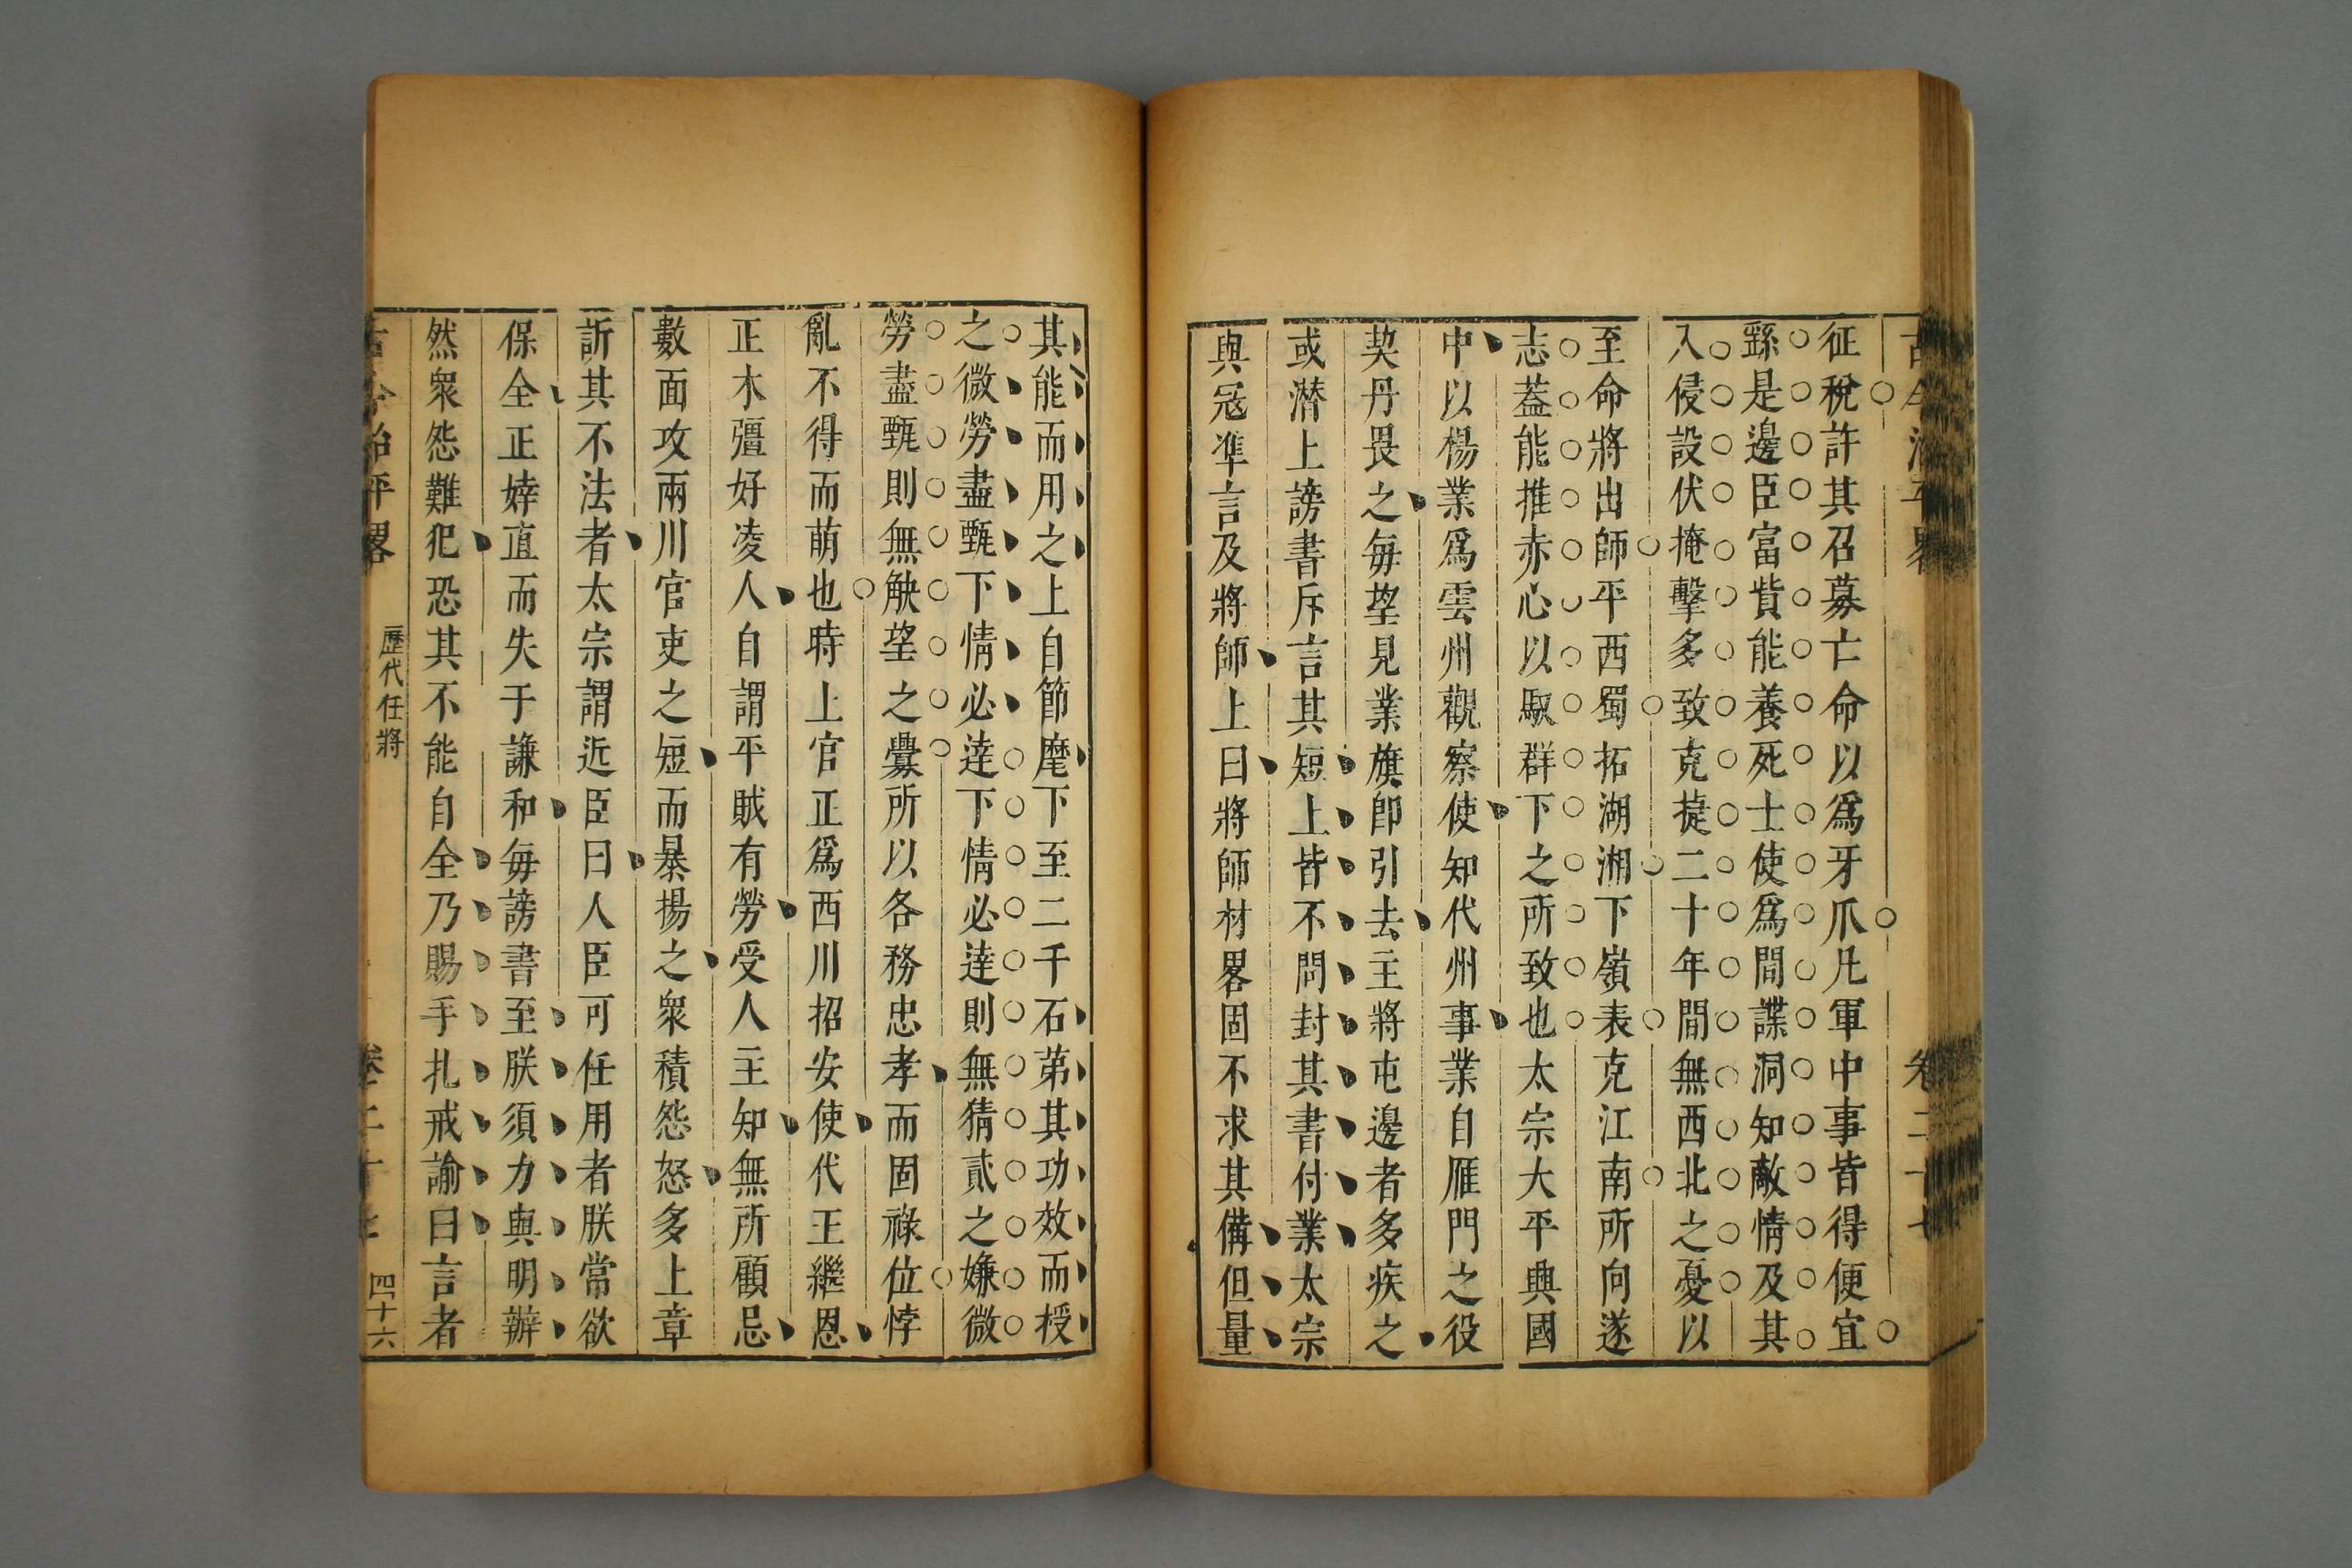 古今治平畧 卷二十七
征稅許其召募亡命以爲牙爪凡軍中事皆得便宜
繇是邊臣富貲能養死士使爲間諜洞知敵情及其
入侵設伏掩擊多致克捷二十年間無西北之憂以
至命將出師平西蜀拓湖湘下嶺表克江南所向遂
志蓋能推赤心以馭群下之所致也太宗大平興國
中以楊業爲雲州觀察使知代州事業自雁門之役
契丹畏之每望見業旗卽引去主將屯邊者多疾之
或潜上謗書斥言其短上皆不問封其書付業太宗
與冦凖言及將師上曰將師材畧固不求其備但量
其能而用之上自節麾下至二千石第其功效而授
之微勞盡甄下情必逹下情必逹則無猜貳之嫌微
勞盡甄則無觖望之釁所以各務忠孝而固祿位悖
亂不得而萌也時上官正爲西川招安使代王繼恩
正木彊好凌人自謂平賊有勞受人主知無所顧忌
數面攻兩川官吏之短而暴揚之衆積怨怒多上章
訴其不法者太宗謂近臣曰人臣可任用者朕常欲
保全正婞直而失于謙和每謗書至朕須力與明辦
然衆怨難犯恐其不能自全乃賜手扎戒諭曰言者
古今治平畧 歷代任將 卷二十七 四十六